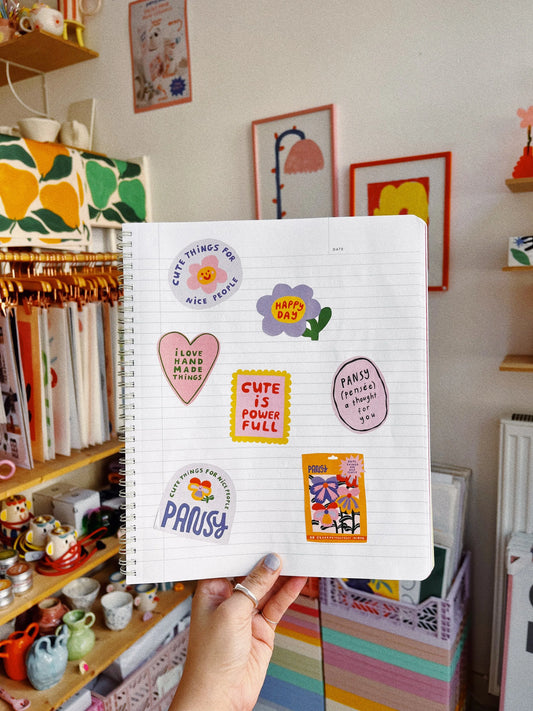 DATE
CUTE THINGS FOR
NICE PEOPLE
HAPPY
DAY
i LOVE
HAND
MADE
THINGS
CUTE
iS
POWER
FULL
PANSY
(pensée)
a thought
for
you
CUTE THINGS FOR NICE PEOPLE
PANSY
PANSY